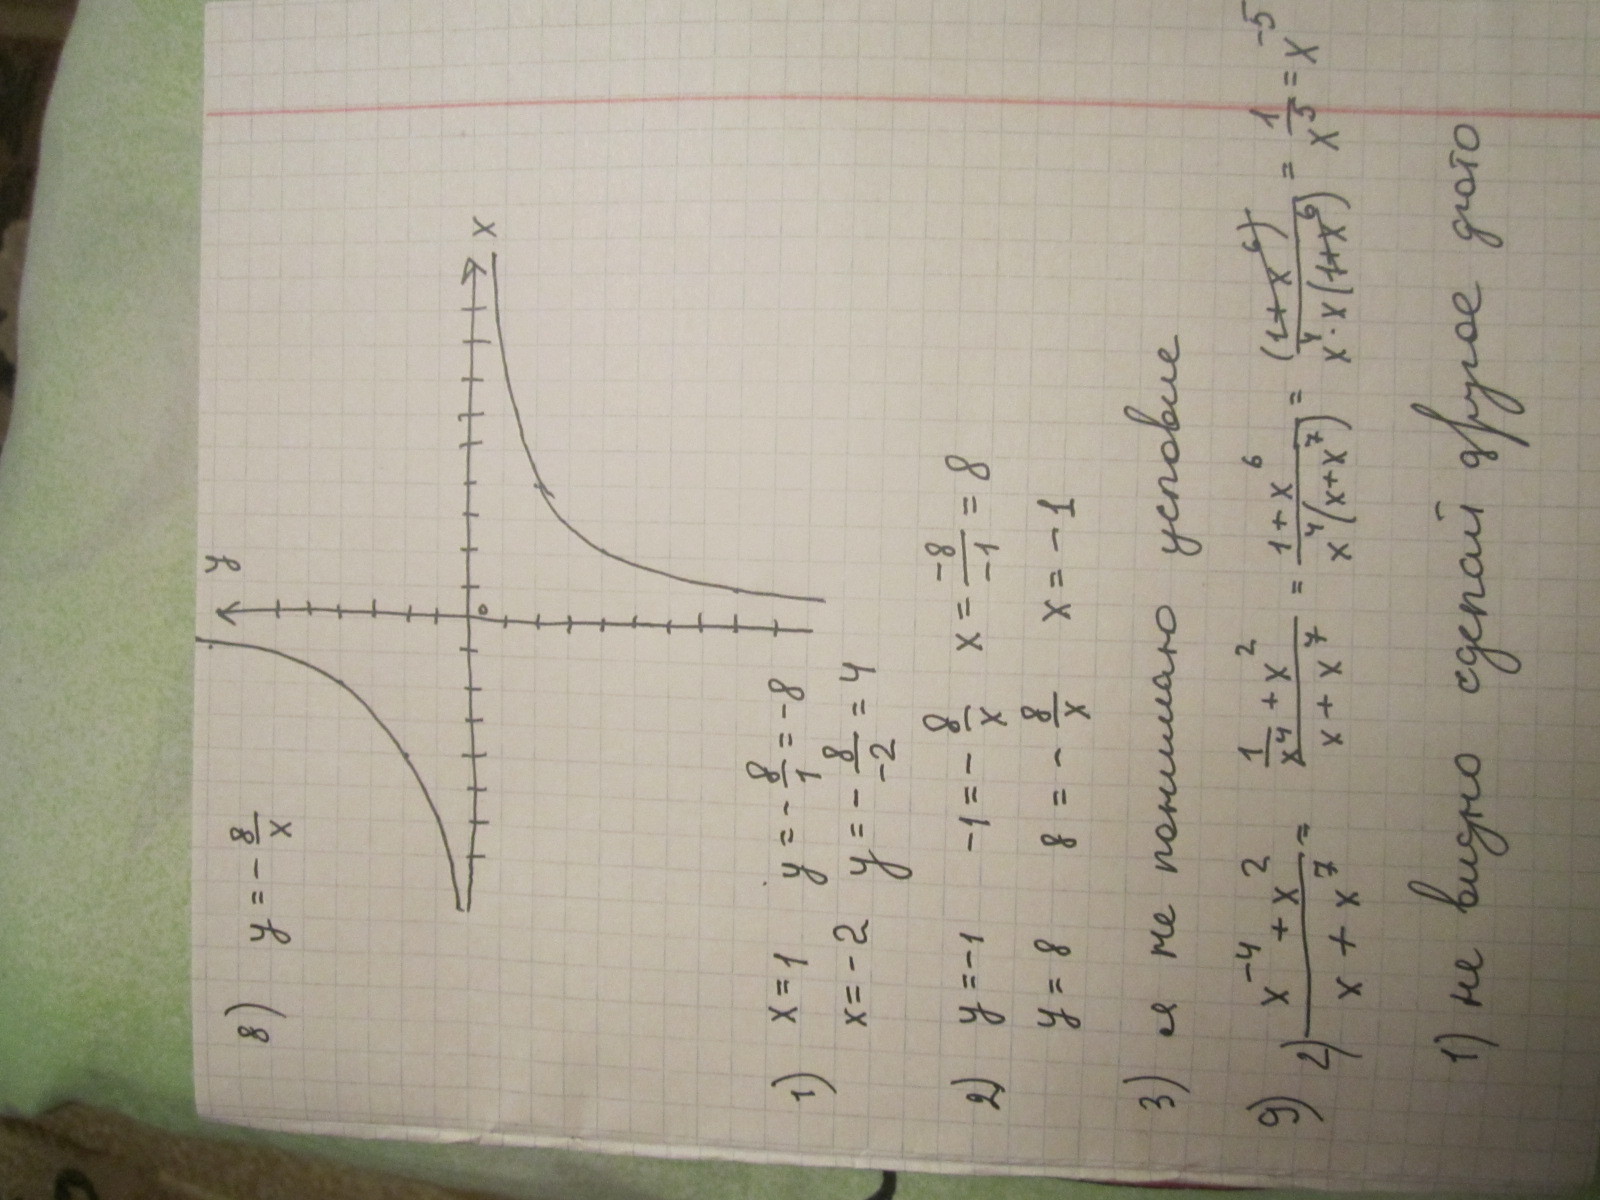 8) y = - 8/x
y
x
0
1) x = 1 y = - 8/1 = -8
x = -2 y = - 8/-2 = 4
2) y = -1 -1 = - 8/x x = -8/-1 = 8
y = 8 8 = - 8/x x = -1
3) я не понимаю условие
9) 2) (x⁻⁴ + x²)/(x + x⁷) = (1/x⁴ + x²)/(x + x⁷) = (1 + x⁶)/(x⁴(x + x⁷)) = (1 + x⁶)/(x⁴ · x(1 + x⁶)) = 1/x⁵ = x⁻⁵
1) не видно сделай другое фото